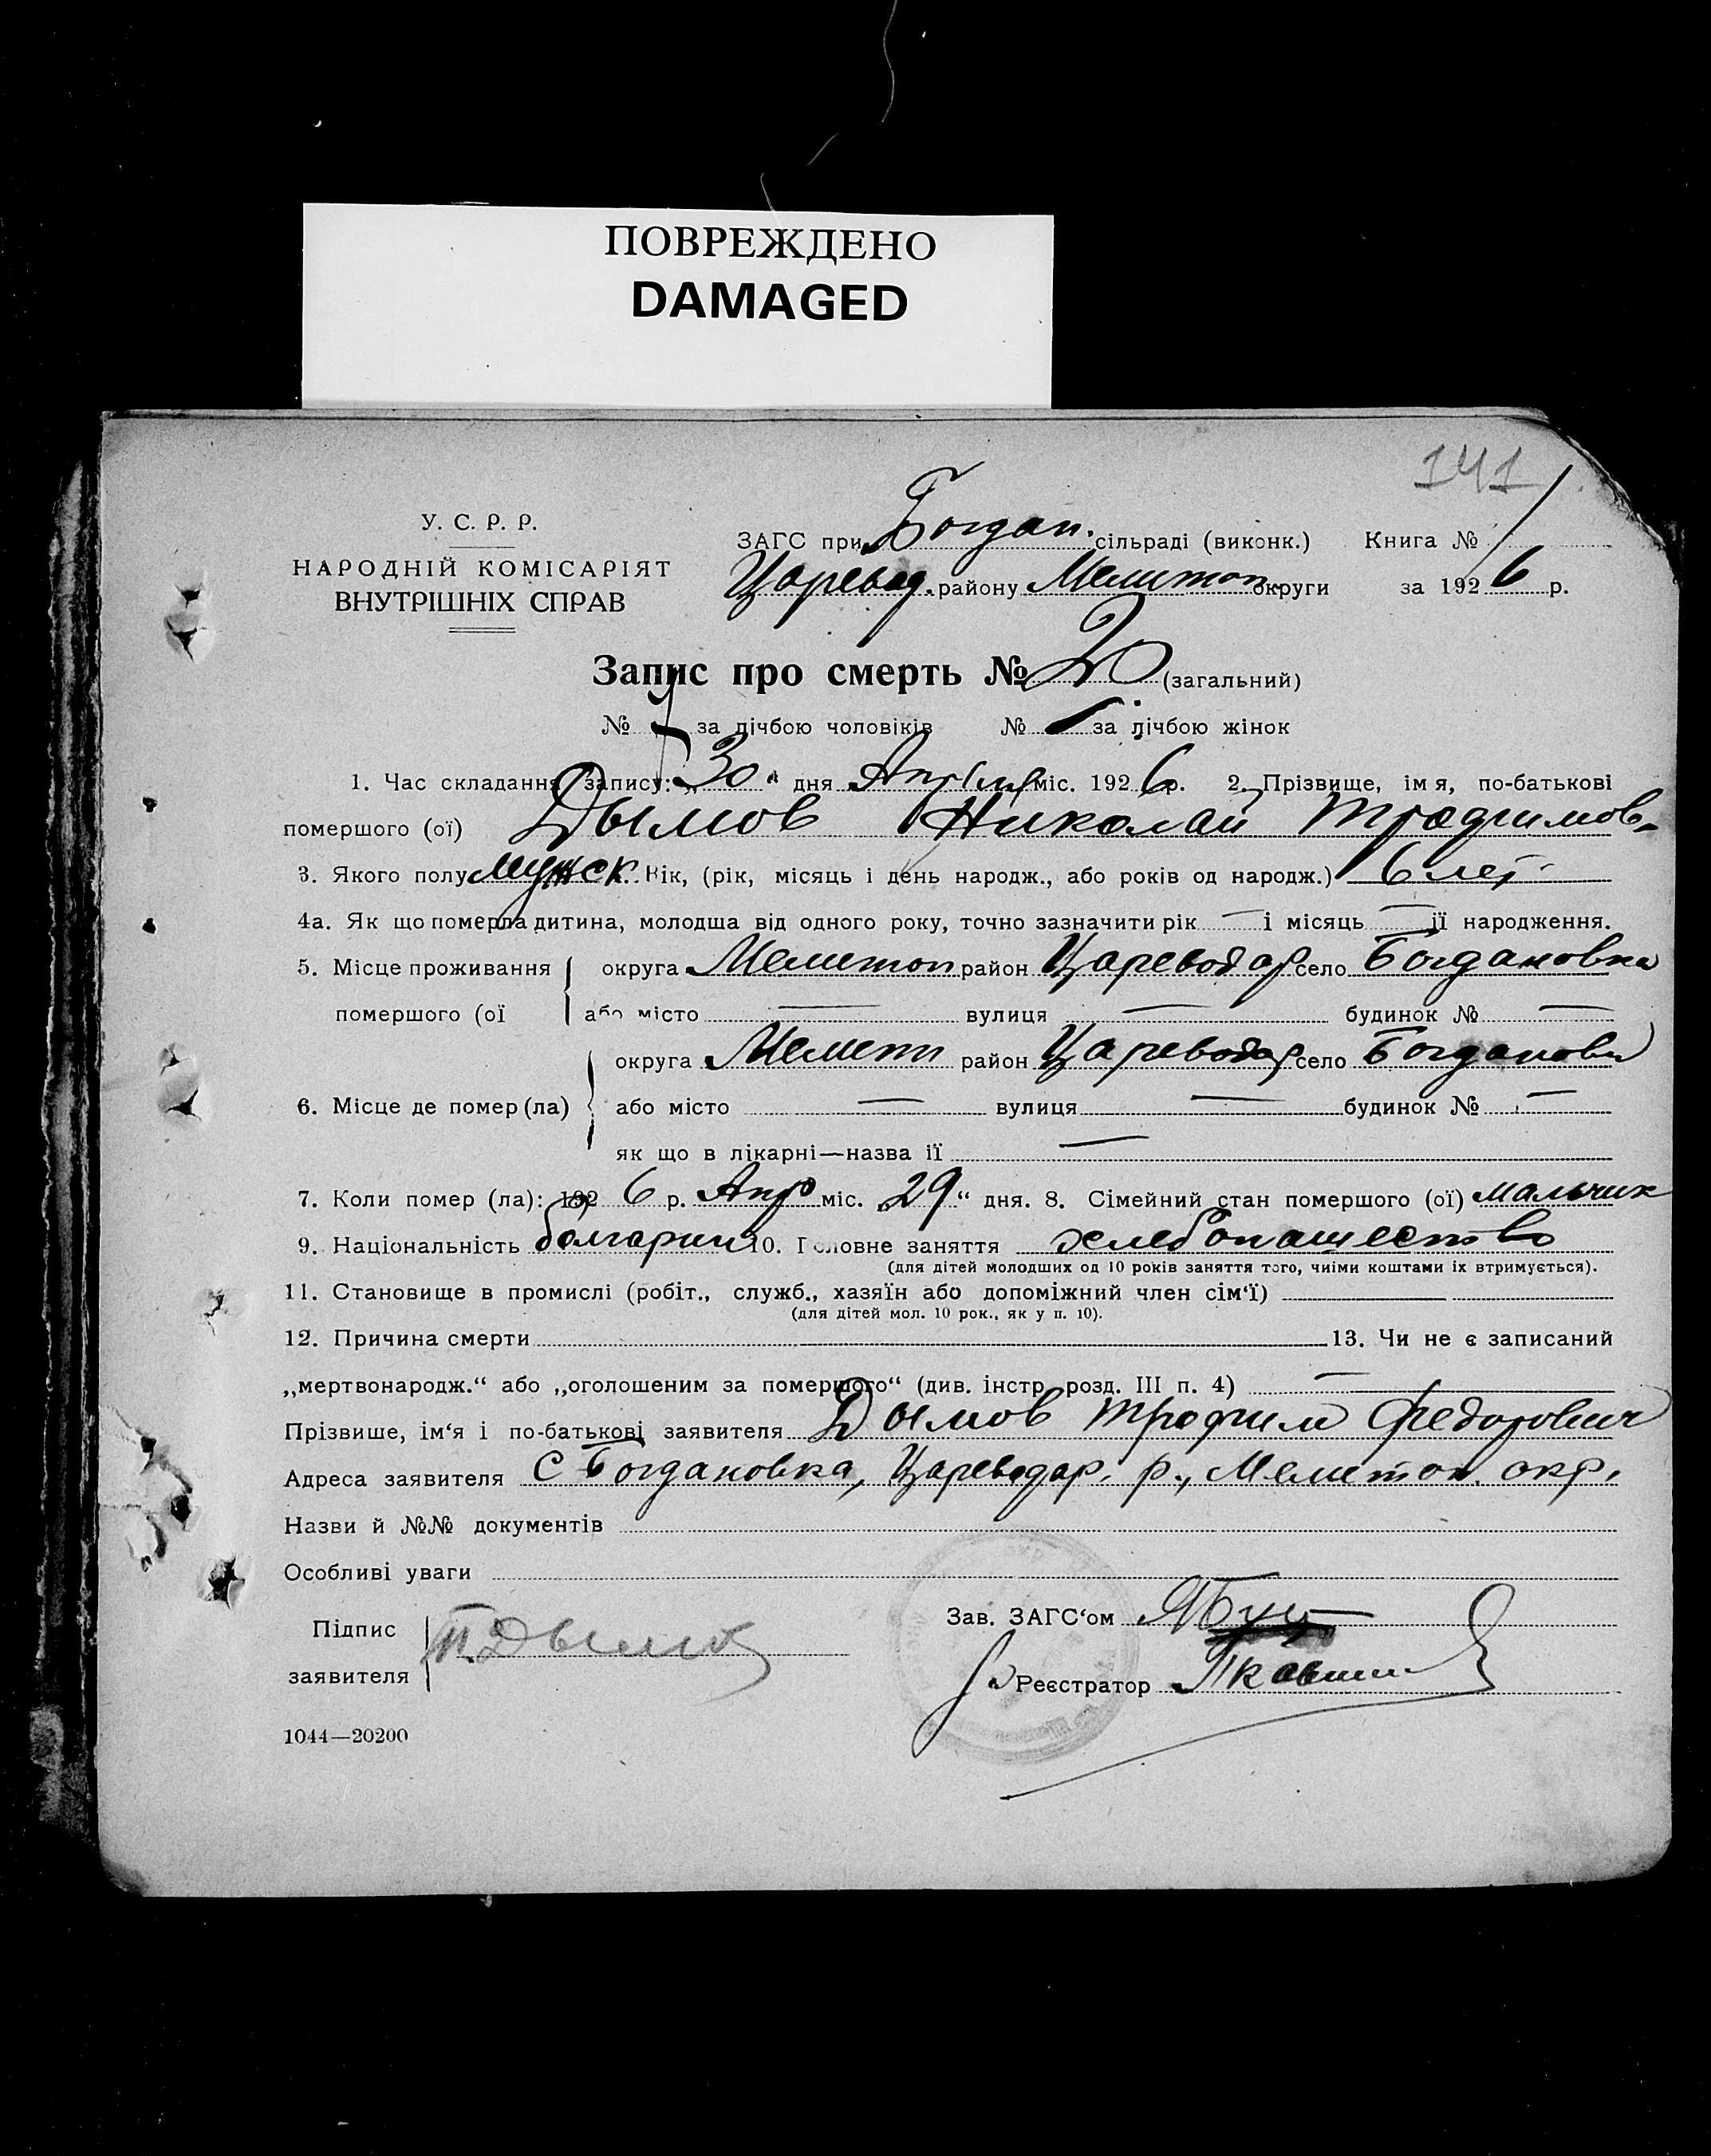 ПОВРЕЖДЕНО
DAMAGED
141
У. С. Р. Р.
НАРОДНІЙ КОМІСАРІЯТ
ВНУТРІШНІХ СПРАВ
ЗАГС при Богдан. сільраді (виконк.) Книга № /
Царевод. району Мелитоп округи за 1926 р.
Запис про смерть № 20 (загальний)
№ за лічбою чоловіків № за лічбою жінок
1. Час складання запису: „30“ дня Апреля міс. 1926 р. 2. Прізвище, імя, по-батькові
помершого (ої) Дымов Николай Трофимов-
3. Якого полу мужск. Вік, (рік, місяць і день народж., або років од народж.) 6 лет
4а. Як що померла дитина, молодша від одного року, точно зазначити рік — і місяць — її народження.
5. Місце проживання помершого (ої округа Мелитоп район Цареводар село Богдановка
або місто — вулиця — будинок № —
6. Місце де помер (ла) округа Мелит район Цареводар село Богдановка
або місто — вулиця — будинок № —
як що в лікарні—назва її —
7. Коли помер (ла): 1926 р. Апр міс. „29“ дня. 8. Сімейний стан помершого (ої) мальчик
9. Національність болгарин 10. Головне заняття хлебопашество
(для дітей молодших од 10 років заняття того, чиїми коштами їх втримується).
11. Становище в промислі (робіт., служб., хазяїн або допоміжний член сім‘ї) —
(для дітей мол. 10 рок., як у п. 10).
12. Причина смерти 13. Чи не є записаний
„мертвонародж.“ або „оголошеним за помершого“ (див. інстр. розд. III п. 4) —
Прізвише, ім‘я і по-батькові заявителя Дымов Трофим Федорович
Адреса заявителя с Богдановка, Цареводар. р., Мелитоп. окр.
Назви й №№ документів
Особливі уваги
Підпис заявителя Т. Дымов
Зав. ЗАГС‘ом
Реєстратор
1044—20200